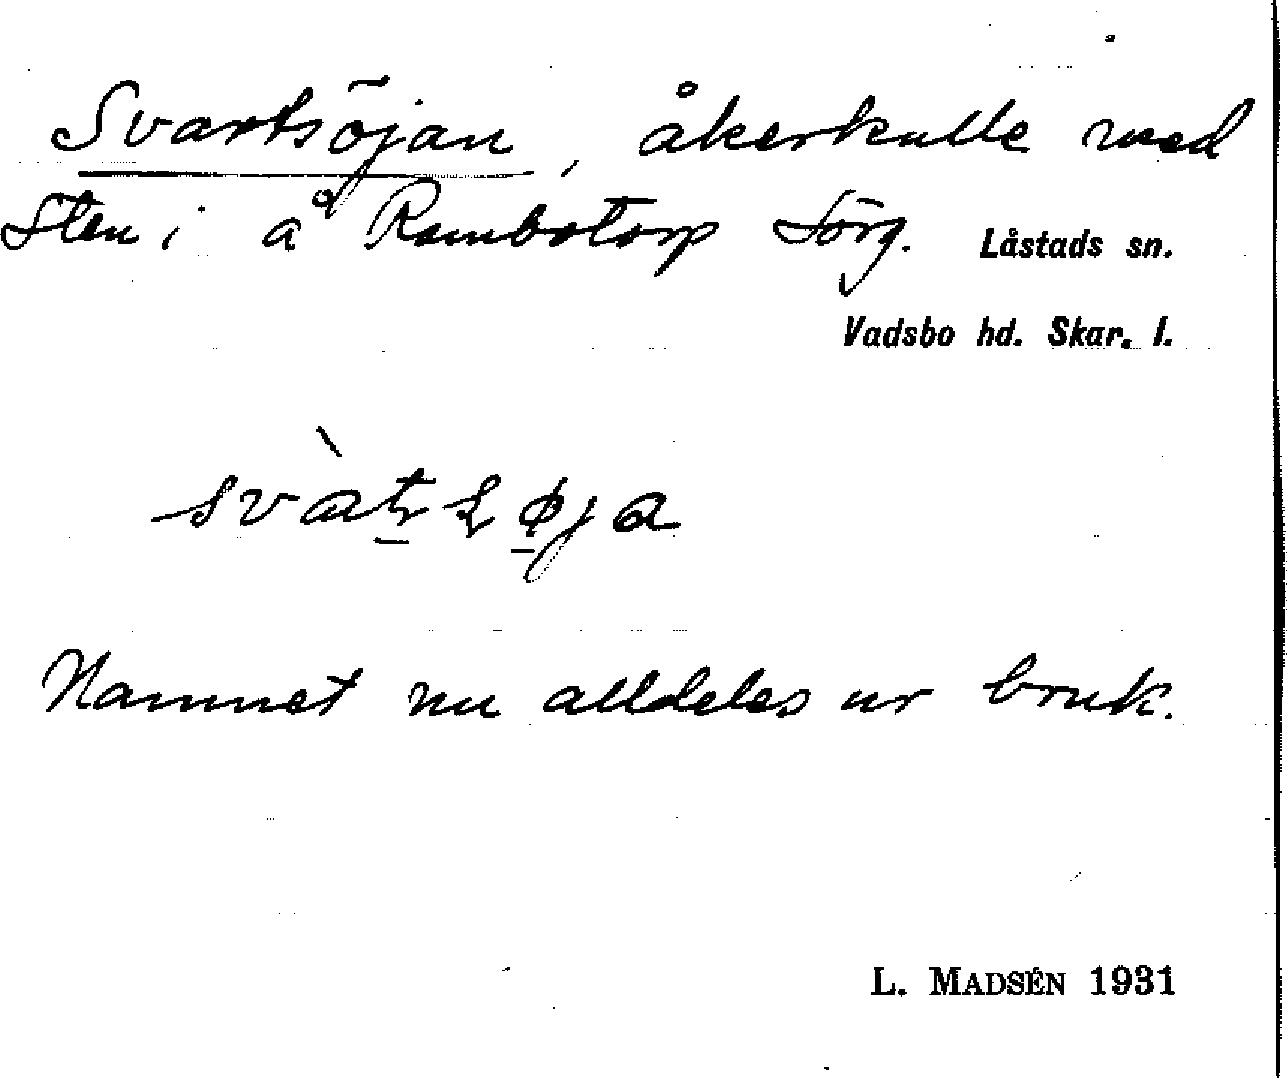 Svartsöjan, åkerkulle med
Sten i å Rambotorp Sörg. Låstads sn.
Vadsbo hd. Skar. l.
Namnet nu alldeles ur bruk.
L. MADSÉN 1931